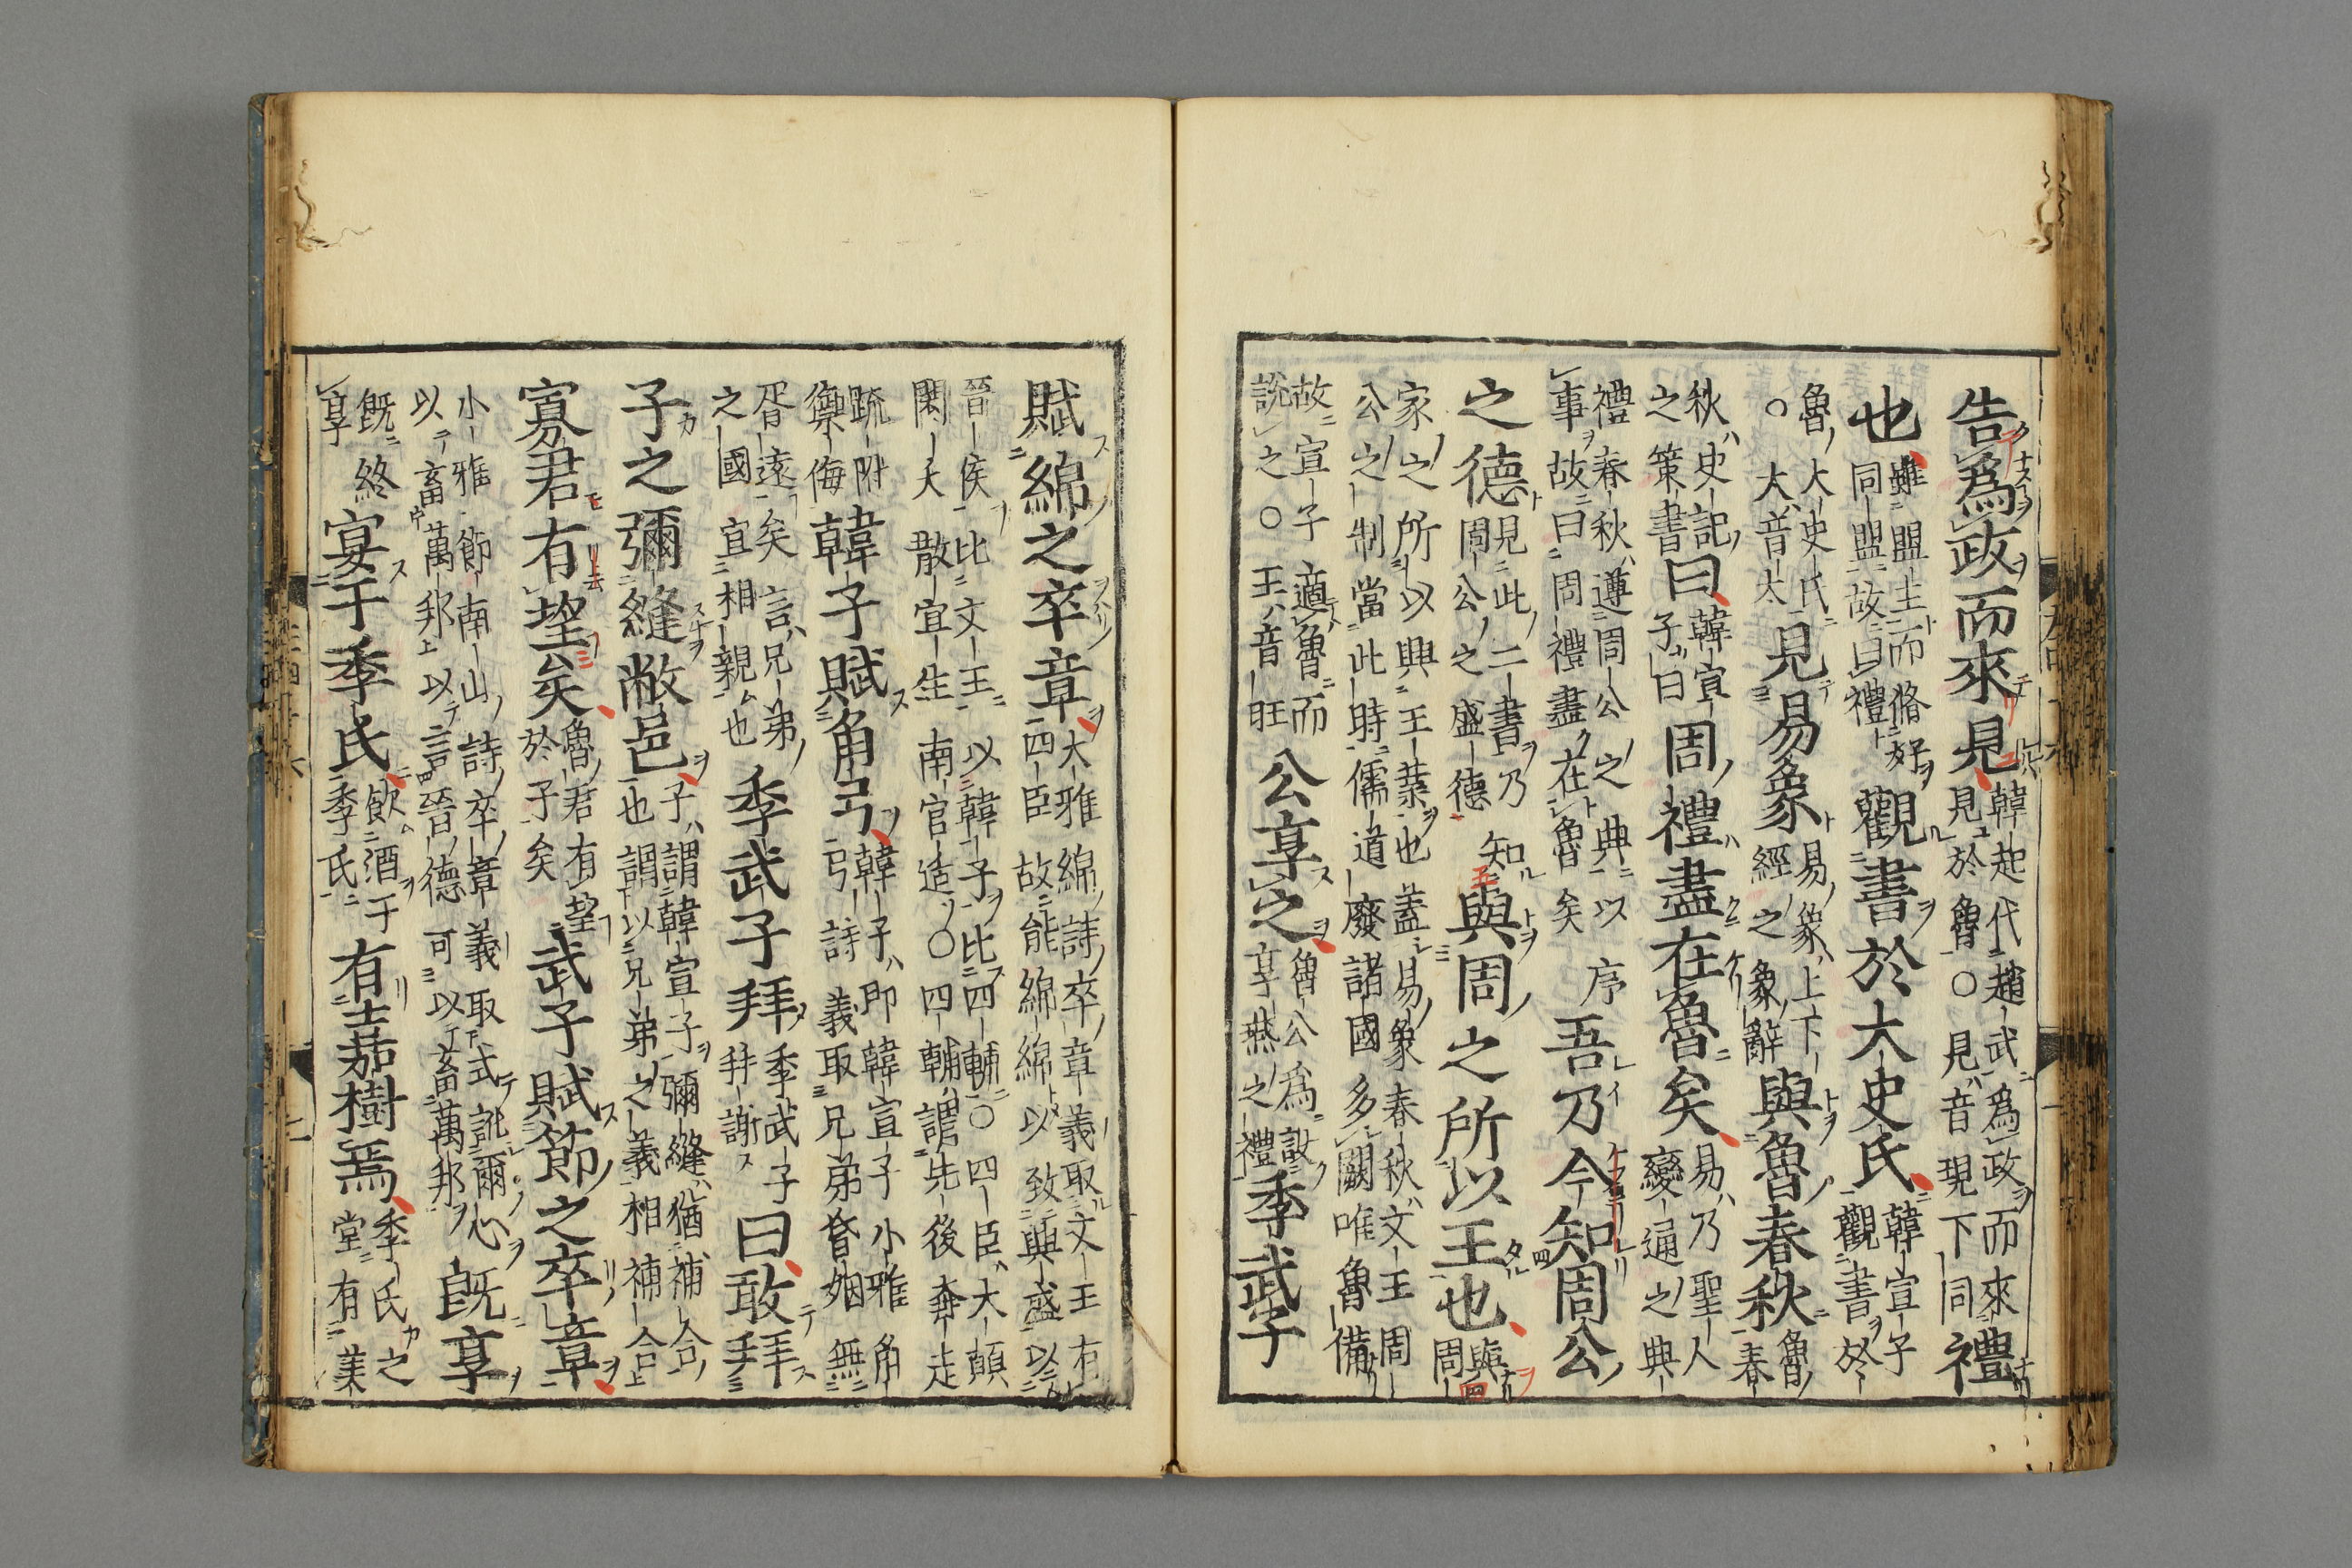 告爲政而來見韓起代趙武爲政而來見於魯○見音現下同禮
也雖盟主而脩好同盟故曰禮觀書於大史氏韓宣子觀書於
魯大史氏○大音太見易象易象上下經之象辭與魯春秋魯春
秋史記之策書曰韓宣子曰周禮盡在魯矣易乃聖人變通之典
禮春秋遵周公之典以事故曰周禮盡在魯矣序吾乃今知周公
之德見此二書乃知周公之盛德與周之所以王也與周
家之所以興王業也蓋易象春秋文王周公之制當此時儒道廢諸國多闕唯魯備
故宣子適魯而說之○王音旺公享之魯公爲設享燕之禮季武子
賦綿之卒章大雅綿詩卒章義取文王有四臣故能綿綿以致興盛以
晉侯比文王以韓子比四輔○四臣大顛閎夭散宜生南官适○四輔謂先後奔走
疏附禦侮韓子賦角弓韓子即韓宣子小雅角弓詩義取兄弟昏姻無
胥遠矣言兄弟之國宜相親也季武子拜季武子拜謝曰敢拜
子之彌縫敝邑子謂韓宣子彌縫猶補合也謂以兄弟之義相補合
寡君有望矣魯君有望於子矣武子賦節之卒章
小雅節南山詩卒章義取式訛爾心以畜萬邦以言晉德可以畜萬邦既享
既終享宴于季氏飲酒于季氏有嘉樹焉季氏之堂有美